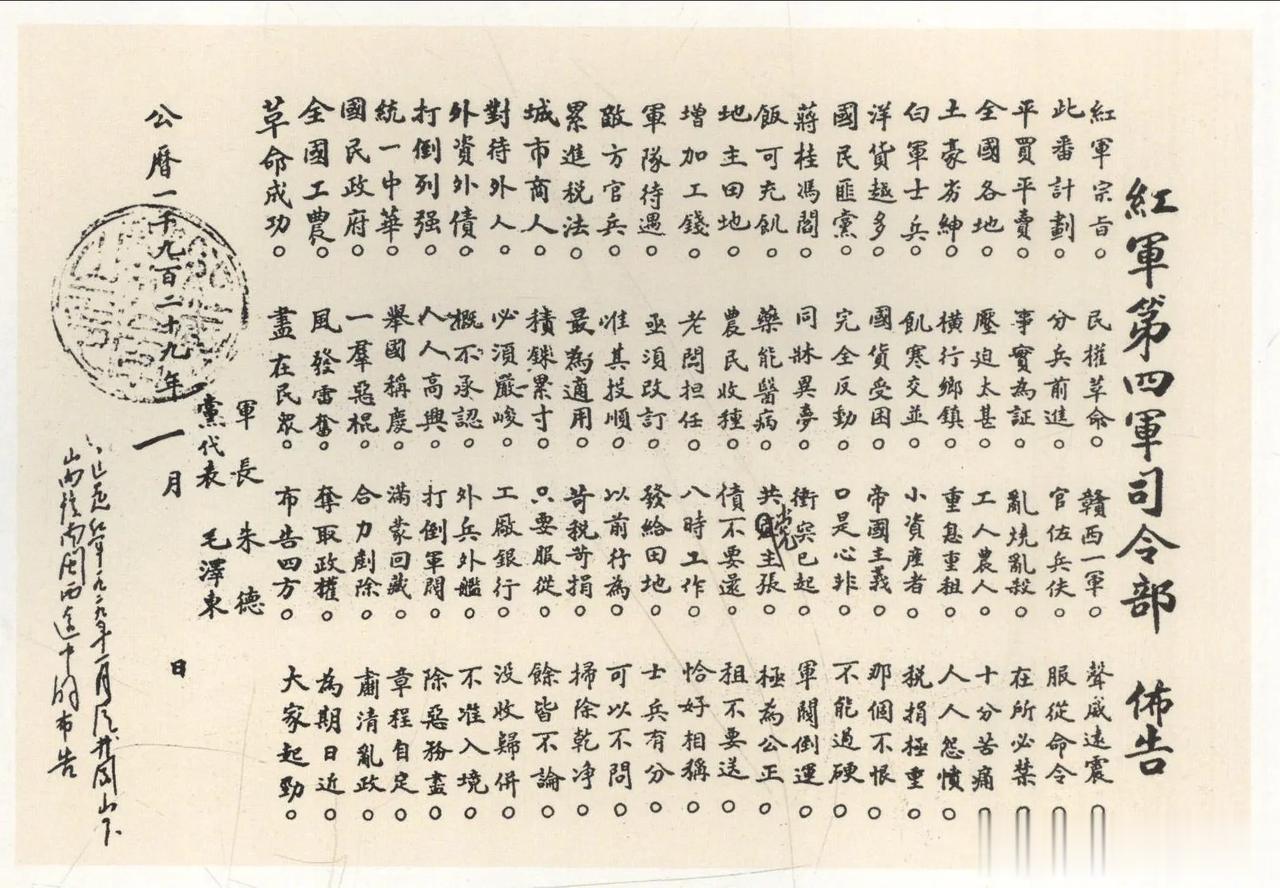 紅軍第四軍司令部 佈告
紅軍宗旨。民權革命。贛西一軍。聲威遠震。
此番計劃。分兵前進。官佐兵伕。服從命令。
平買平賣。事實為証。亂燒亂殺。在所必禁。
全國各地。壓迫太甚。工人農人。十分苦痛。
土豪劣紳。橫行鄉鎮。重息重租。人人怨憤。
白軍士兵。飢寒交並。小資產者。税捐極重。
洋貨越多。國貨受困。帝國主義。那個不恨。
國民匪黨。完全反動。口是心非。不能過硬。
蔣桂馮閻。同牀異夢。衝突已起。軍閥倒運。
飯可充飢。藥能醫病。共党主張。極為公正。
地主田地。農民收種。債不要還。租不要送。
增加工錢。老闆担任。八時工作。恰好相稱。
軍隊待遇。亟須改訂。發給田地。士兵有分。
敵方官兵。准其投順。以前行為。可以不問。
累進税法。最為適用。苛税苛捐。掃除乾净。
城市商人。積銖累寸。只要服從。餘皆不論。
對待外人。必須嚴峻。工廠銀行。没收歸併。
外資外債。概不承認。外兵外艦。不准入境。
打倒列强。人人高興。打倒軍閥。除惡務盡。
統一中華。舉國稱慶。滿蒙回藏。章程自定。
國民政府。一羣惡棍。合力剷除。肅清亂政。
全國工農。風發雷奮。奪取政權。為期日近。
革命成功。盡在民衆。布告四方。大家起勁。
軍長 朱德
黨代表 毛澤東
公曆一千九百二十九年 一月 日
這是紅軍一九二九年一月從井岡山下
山向贛南閩西途中的布告